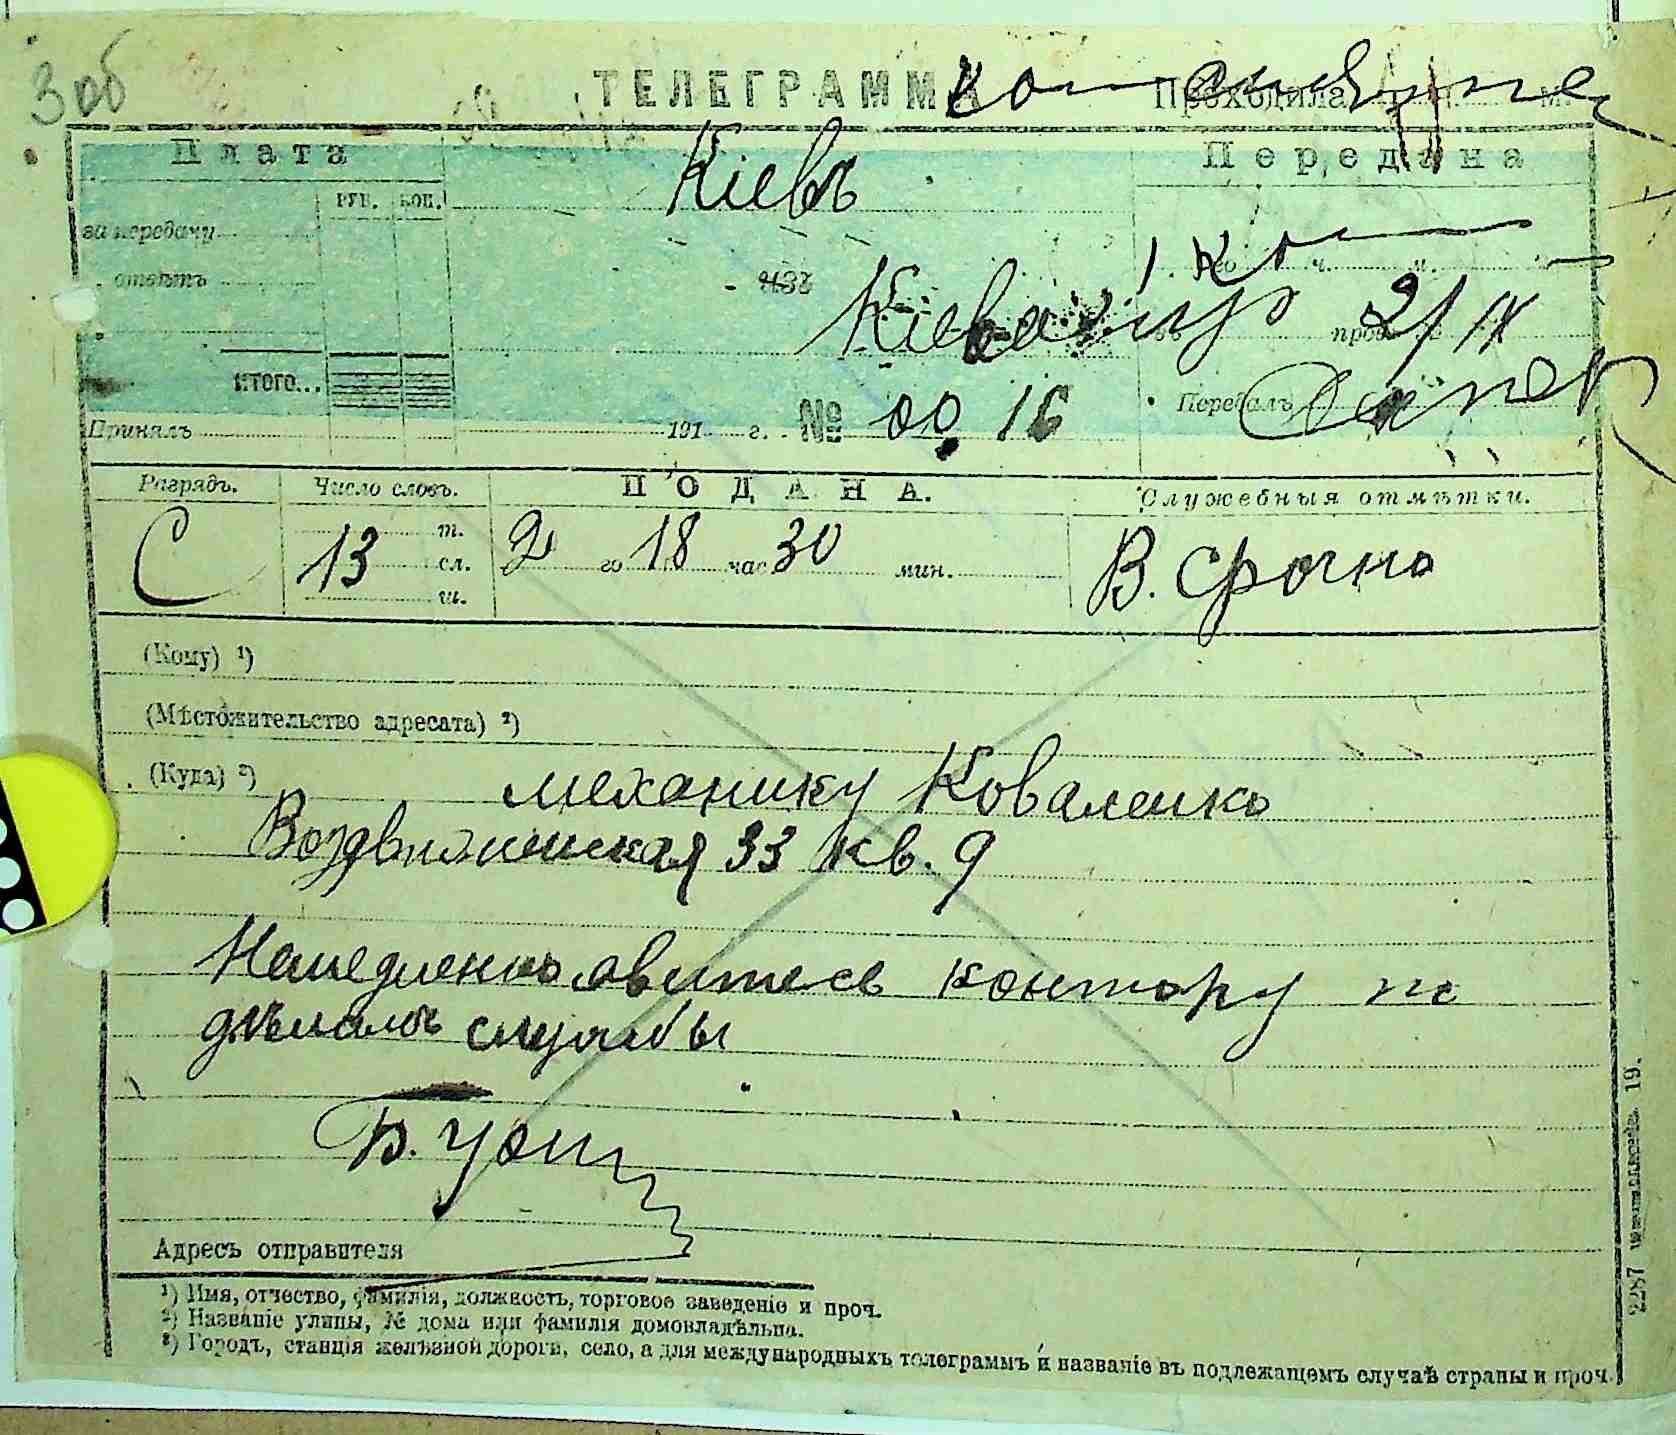 3 об
ТЕЛЕГРАММА Проходила
Плата
Кіевъ
Передана
РУБ. КОП.
за передачу
отвѣтъ
изъ
1.
2/IX
ИТОГО...
Передалъ
Принялъ 191 г. № 00 16
Разрядъ.
Число словъ.
ПОДАНА.
Служебныя отмѣтки.
С
13
т.
сл.
ш.
2 го 18 час 30 мин.
В. срочно
(Кому) ¹)
(Мѣстожительство адресата) ²)
(Куда) ³)
механику Коваленко
Воздвиженская 33 кв. 9
Немедленно явитесь контору по
дѣламъ службы
Адресъ отправителя
¹) Имя, отчество, фамилія, должность, торговое заведеніе и проч.
²) Названіе улицы, № дома или фамилія домовладѣльца.
³) Городъ, станція желѣзной дороги, село, а для международныхъ телеграммъ и названіе въ подлежащемъ случаѣ страны и проч.
2287
19.